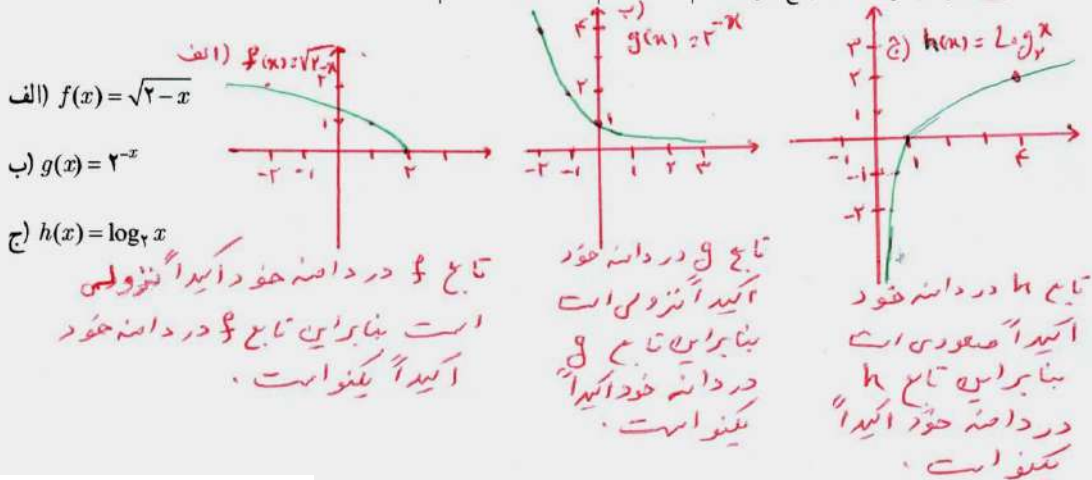 الف) f(x) = √۲ − x
ب) g(x) = ۲^−x
ج) h(x) = log_۲ x
الف) f(x) = √۲−x
۲
۱
−۲ −۱ ۲
تابع f در دامنه خود اکیداً نزولی
است بنابراین تابع f در دامنه خود
اکیداً یکنواست.
ب)
g(x) = ۲^−x
۴
۲
۱
−۲ −۱ ۱ ۲ ۳
تابع g در دامنه خود
اکیداً نزولی است
بنابراین تابع g
در دامنه خود اکیداً
یکنواست.
ج) h(x) = Log_۲^x
۳
۲
۱
−۱ ۱ ۴
−۱
−۲
تابع h در دامنه خود
اکیداً صعودی است
بنابراین تابع h
در دامنه خود اکیداً
یکنواست.